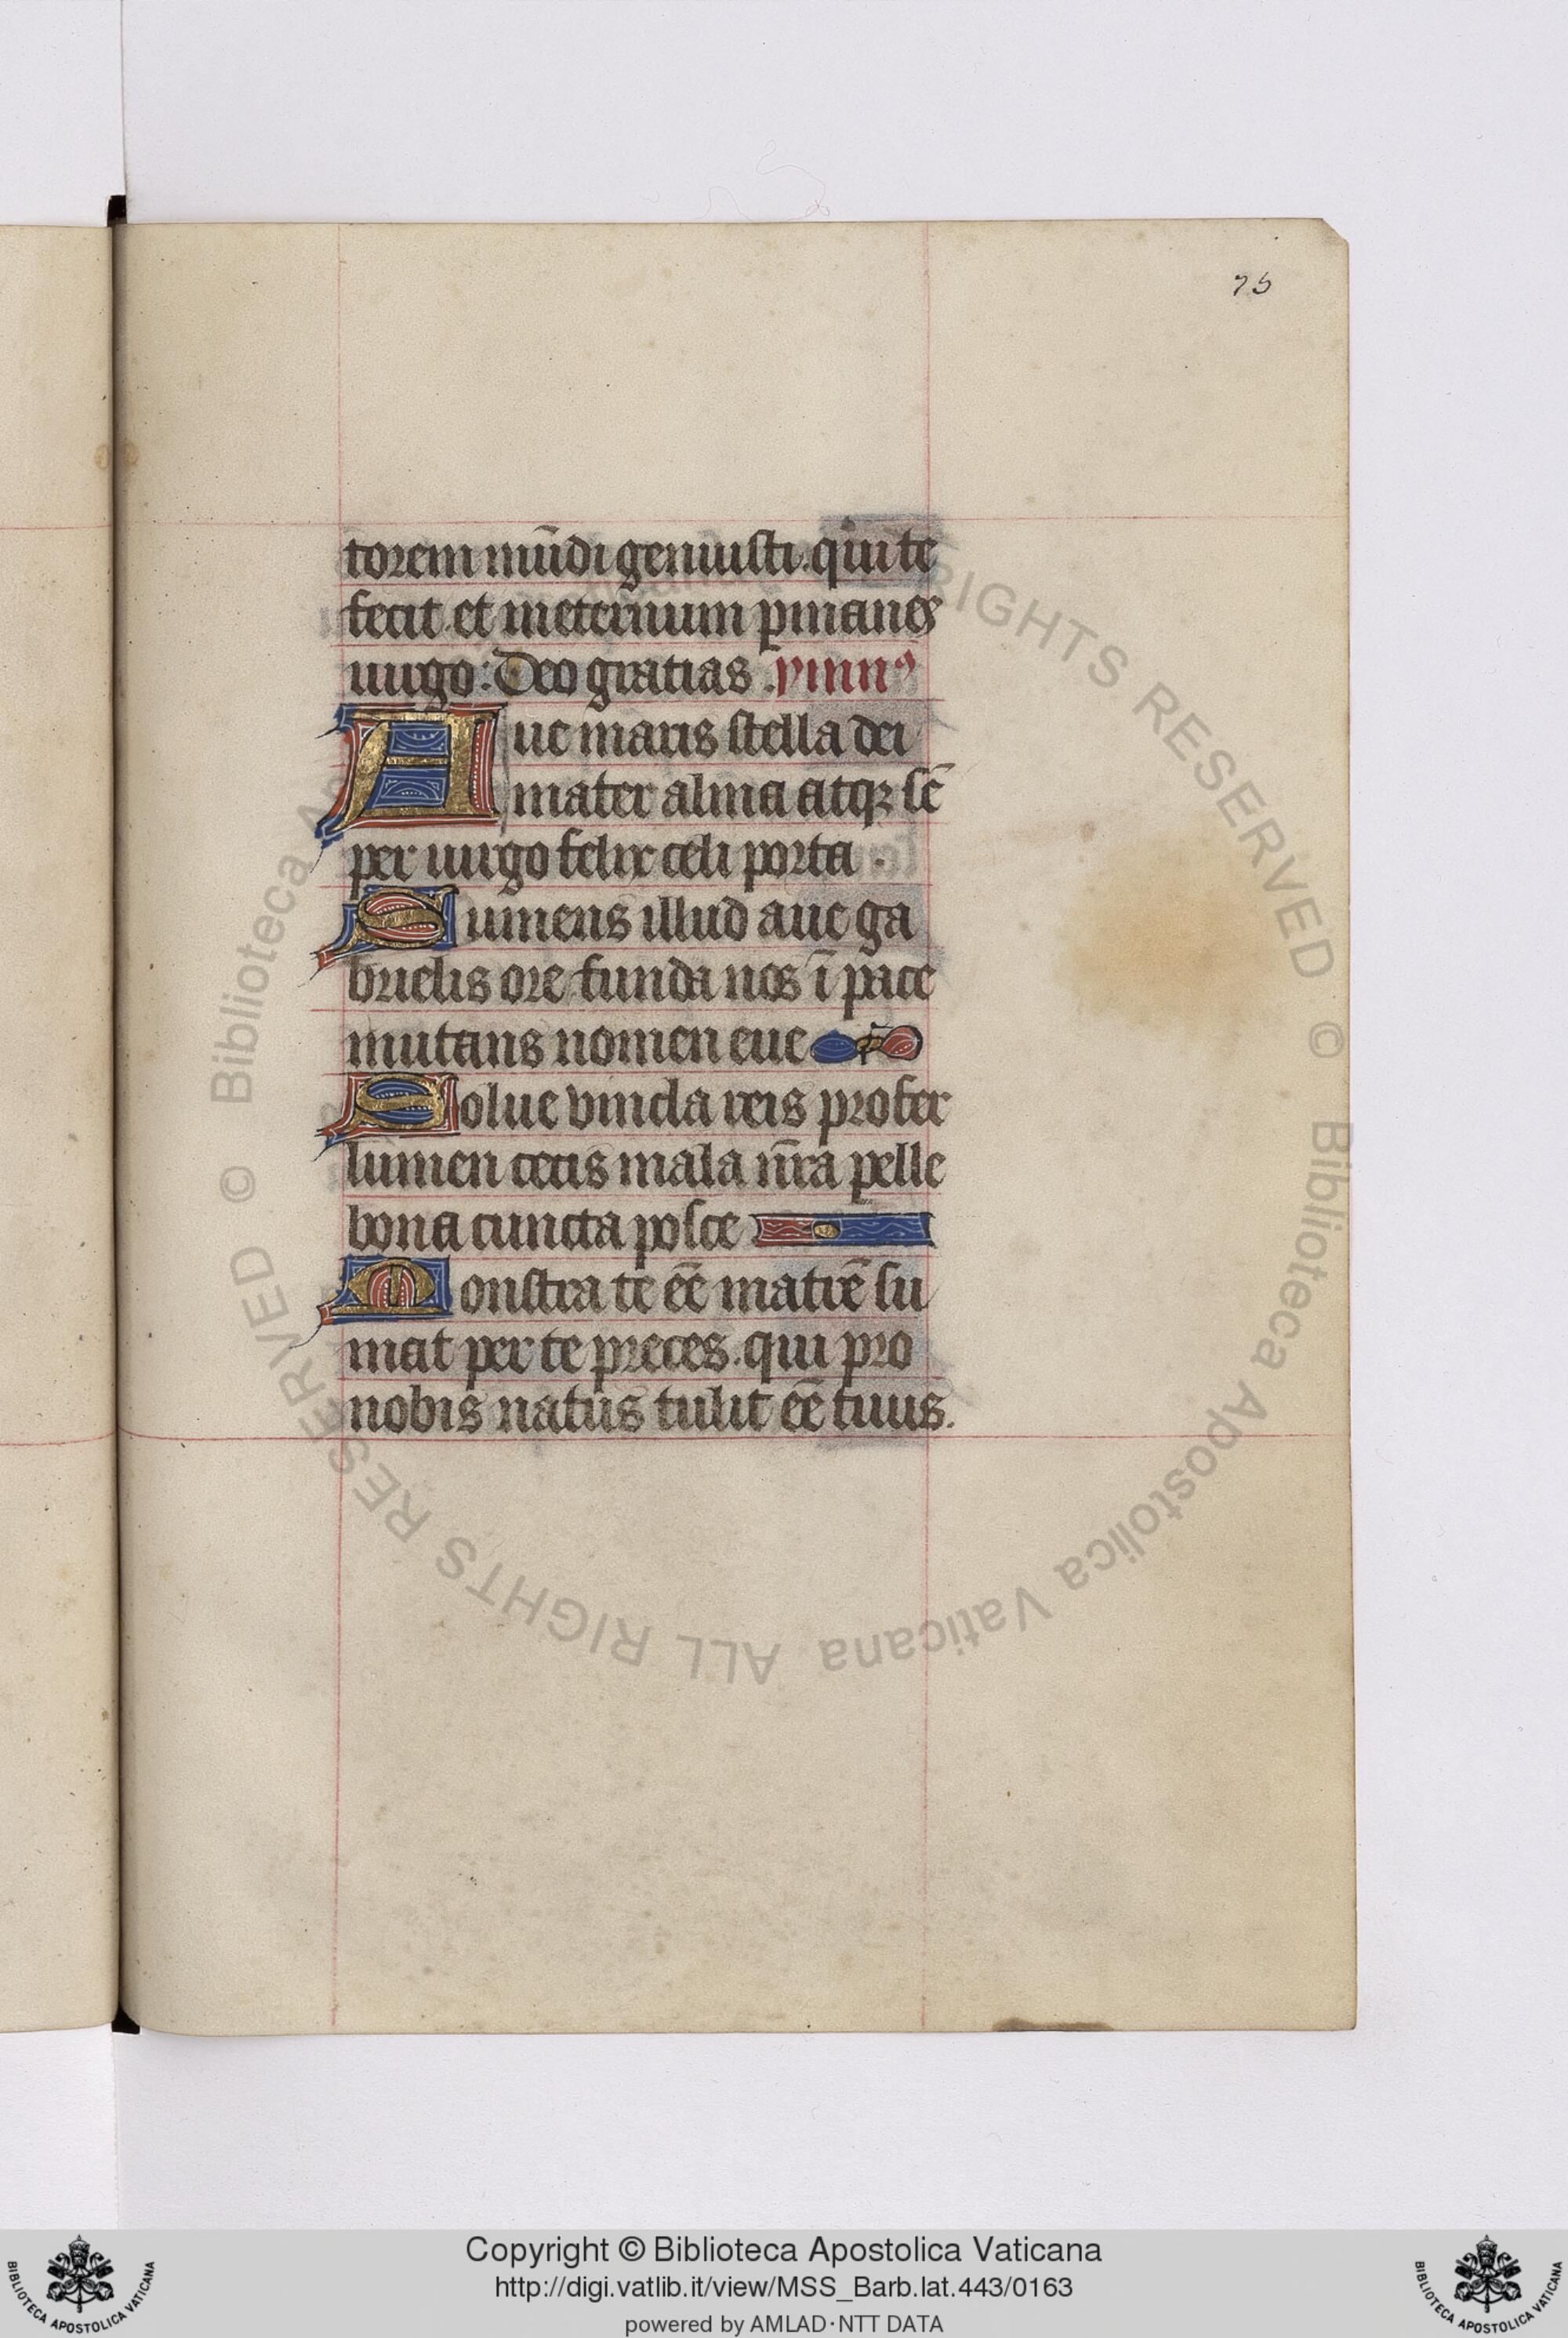 75
torem mūdi genuisti. qui te
fecit. et ineternum ꝑmanes
uirgo: Deo gratias. ymnꝰ
Aue maris stella dei
mater alma atqꝫ sē
per uirgo felix celi porta .
Sumens illud aue ga
brielis ore funda nos ī pace
mutans nomen eue
Solue vincla reis profer
lumen cecis mala nr̄a pelle
bona cuncta posce
Monstra te eē matrē su
mat per te preces. qui pro
nobis natus tulit eē tuus.
© Biblioteca Apostolica Vaticana ALL RIGHTS RESERVED © Biblioteca Apostolica Vaticana ALL RIGHTS RESERVED
Copyright © Biblioteca Apostolica Vaticana
http://digi.vatlib.it/view/MSS_Barb.lat.443/0163
powered by AMLAD·NTT DATA
BIBLIOTECA APOSTOLICA VATICANA
BIBLIOTECA APOSTOLICA VATICANA